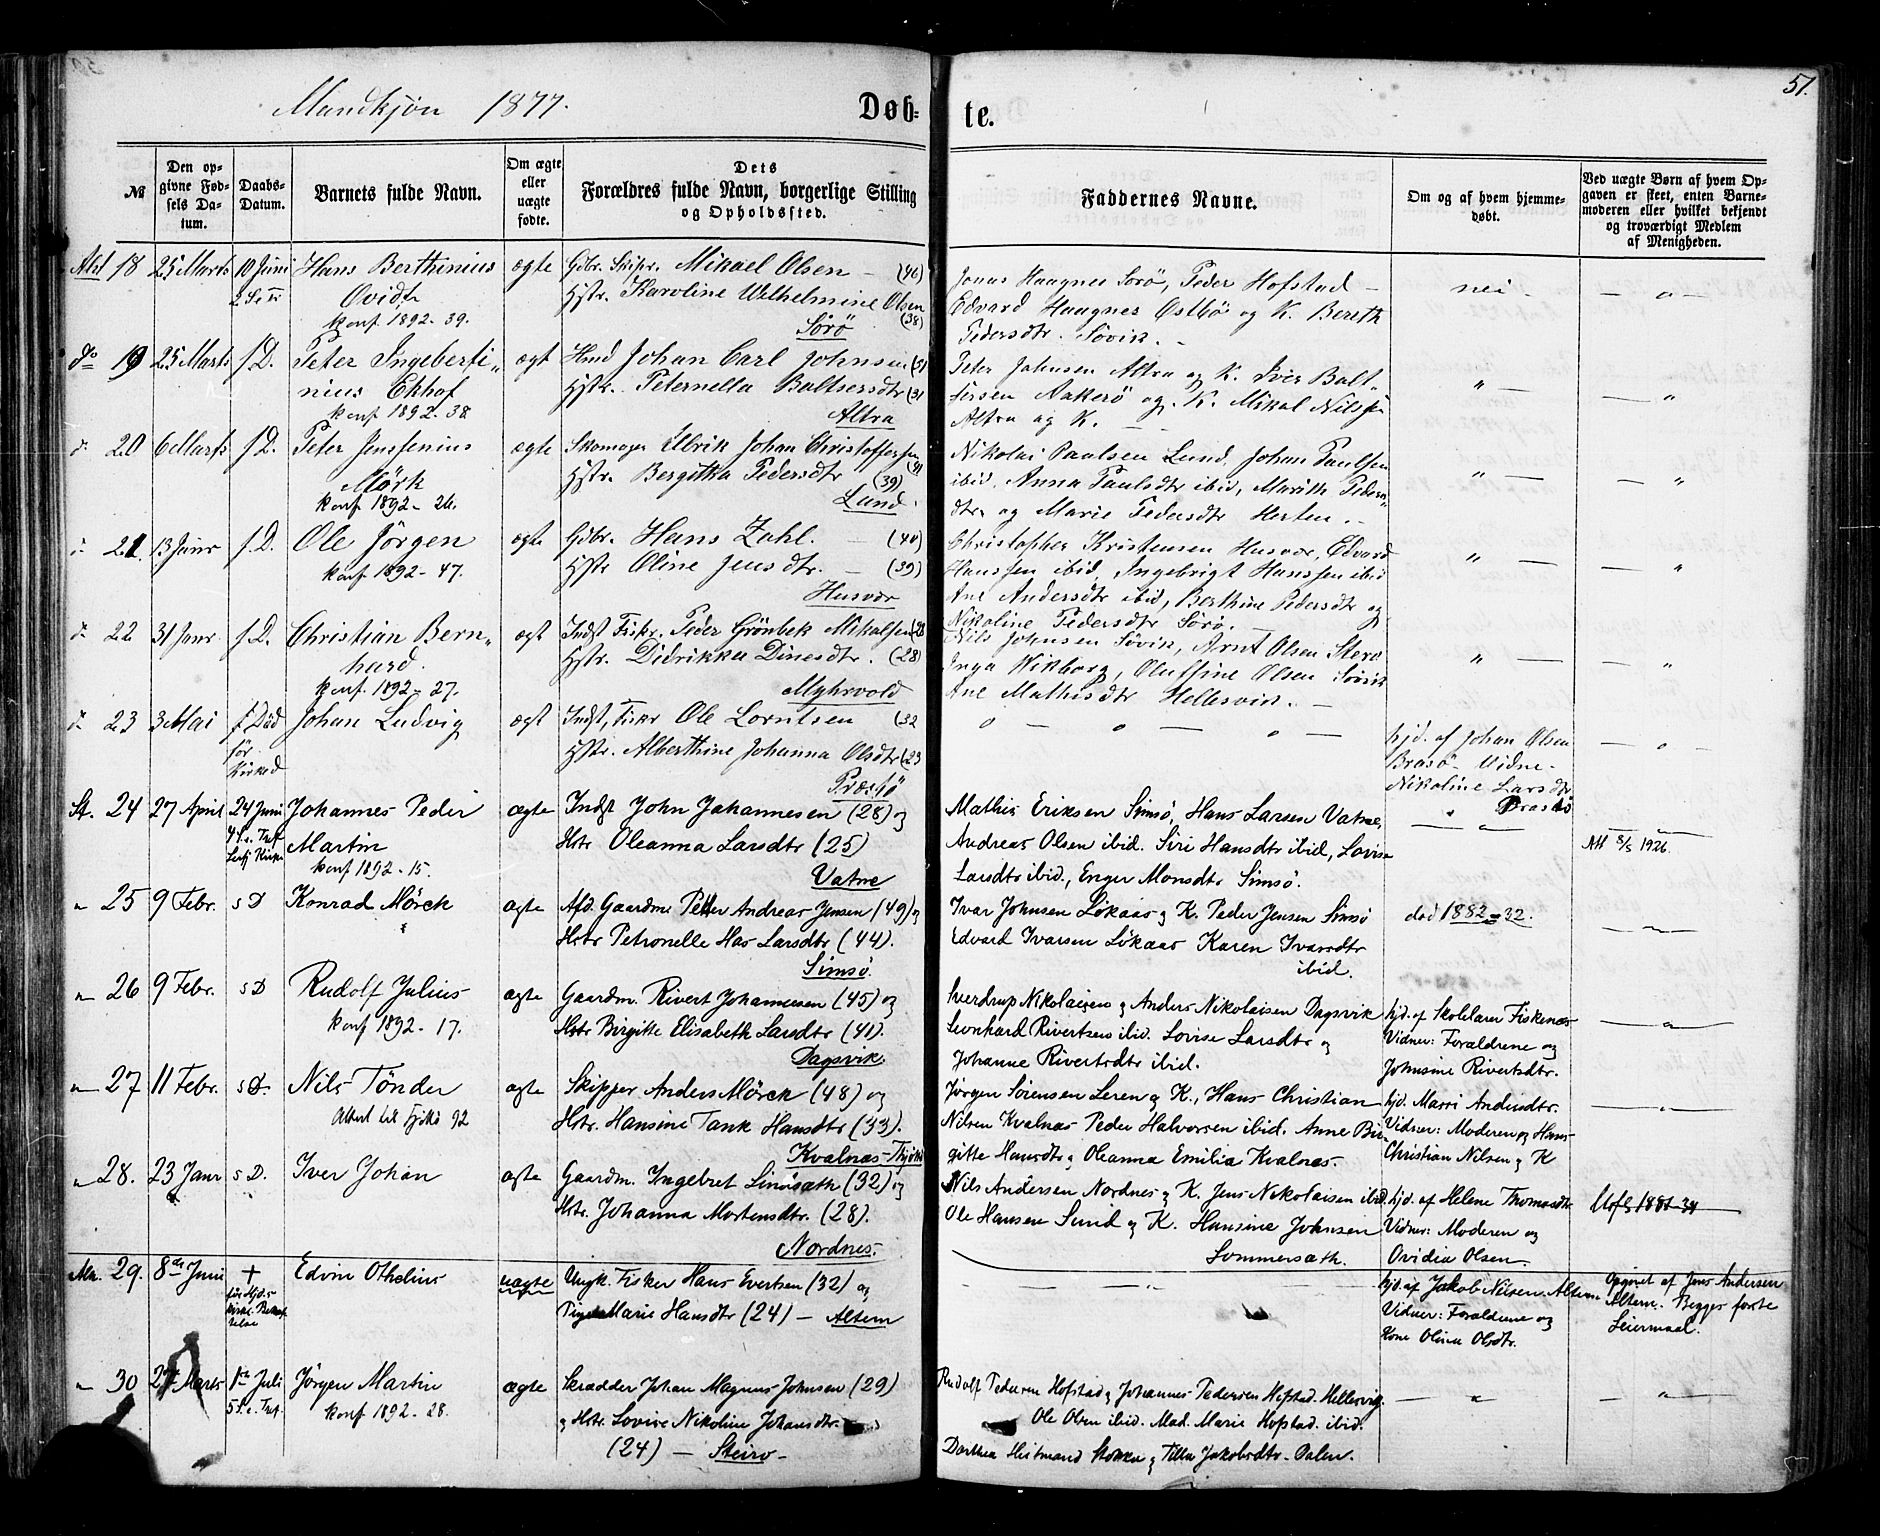 Mandkjøn 1877.
Døb-
te.
51.
№
Den op-
givne Fød-
sels Da-
tum.
Daabs-
Datum.
Barnets fulde Navn.
Om ægte
eller
uægte
fødte.
Dets
Forældres fulde Navn, borgerlige Stilling
og Opholdssted.
Faddernes Navne.
Om og af hvem hjemme-
døbt.
Ved uægte Børn af hvem Op-
gaven er skeet, enten Barne-
moderen eller hvilket bekjendt
og troværdigt Medlem
af Menigheden.
18 25 Marts 10 Juni Hans Berthinius ægte Gdbr. Skipr. Mikael Olsen — (46)
Ovidt Hstr. Karoline Wilhelmine Olsen
konf 1892-39. (38)
Sørö
Jonas Haagnes Sorö, Peder Hofstad —
Edvard Haagnes Ostbö og K. Bereth
Pedersdtr. Sövik. —
nei — — o —
do 19 25 Marts s.D. Peter Ingeberti„ ægt Hmd Johan Carl Johnsen (31
nius Ekhof Hstr. Peternella Baltsersdtr (31
konf 1892-38 Altra
Peter Johnsen Altra og K. Iver Balt„
sersen Aakerö og K. Mikal Nilssen
Altra og K. —
" — — "
20 6 Marts s.D. Peter Jenssenius ægte Skomager Ulrik Johan Christoffersen
Mörk Hstr. Bergitha Pedersdtr (39)
konf 1892-26. Lund.
Nikolai Paulsen Lund, Johan Paulsen
ibid, Anna Paulsdtr ibid, Marith Peders„
dtr og Marie Pedersdtr Herten. —
" — — "
21. 13 Janr s.D. Ole Jörgen ægte Gdbr. Hans Zahl. — (40)
konf 1892-47. Hstr Oline Jensdtr. — (39)
Husvær
Christopher Kristensen Husvær, Edvard
Hanssen ibid, Ingebrigt Hanssen ibid
Ane Andersdtr ibid, Berthine Pedersdtr og
Nikoline Pedersdtr Sörö. —
" — — "
22 31 Janr s.D. Christian Bern„ ægt Indst Fiskr. Peder Grönbek Mikalsen (28
hard. Hstr. Didrikka Dinesdtr. (28)
konf. 1892-27. Myhrvold
Nils Johnsen Sövik, Arnt Olsen Stero
Inga Wikborg, Oluffine Olsen Sövik
Ane Mathisdtr Hellesvik. —
" — — "
23 3 Mai Död Johan Ludvig ægt Indst, Fiskr Ole Lorntsen (32
för Hstr. Alberthine Johanna Olsdtr (23
Kirked Præstö
o — o — o —
hjd. af Johan Olsen
Brasö- Vidne-
Nikoline Larsdtr
Brasö
— o —
St. 24 27 April 24 Juni Johannes Peder ægte Indst John Johannesen (28) og
Martin Hstr Oleanna Larsdtr (25)
konf 1892-15. Vatne
Mathis Eriksen Simsö, Hans Larsen Vatne,
Andreas Olsen ibid. Siri Hansdtr ibid, Lovise
Larsdtr ibid., Enger Monsdtr Simsö.
Att 8/5 1926.
" 25 9 Febr. s D Konrad Mörck ægte Afd. Gaardm Petter Andreas Jensen (49) og
Hstr Petronelle Has Larsdtr (44).
Simsö.
Ivar Johnsen Lökaas og K. Peder Jensen Simsö
Edvard Ivarsen Lökaas Karen Ivarsdtr
ibid.
död 1882-32.
" 26 9 Febr. s D Rudolf Julius ægte Gaardm. Rivert Johannesen (45) og
konf 1892-17. Hstr Birgitte Elisabeth Larsdtr (41).
Dagsvik
Sverdrup Nikolaisen og Anders Nikolaisen Dagsvik
Leonhard Rivertsen ibid. Lovise Larsdtr og
Johanne Rivertsdtr ibid.
hjd. af Skolelærer Fiskenæs
Vidner: Forældrene og
Johnsine Rivertsdtr.
" 27 11 Febr. s D. Nils Tönder ægte Skipper Anders Mörck (48) og
Attest til Tjötö 92 Hstr. Hansine Tank Hansdtr (33).
Kvalnæs-Thjötö
Jörgen Sörensen Leren og K., Hans Christian
Nilsen Kvalnæs Peder Halvorsen ibid. Anne Bir-
gitte Hansdtr og Oleanna Emilia Kvalnæs.
hjd. Marri Andersdtr.
Vidner: Moderen og Hans
Christian Nilsen og K
" 28. 23 Janr s D. Iver Johan ægte Gaardm. Ingebret Simosæth (32) og
Hstr. Johanna Mortensdtr. (28).
Nordnes.
Nils Andersen Nordnes og K. Jens Nikolaisen ibid.
Ole Hansen Sund og K. Hansine Johnsen
Sommersæth.
hjd. af Helene Thomasdtr
Vidner: Moderen og
Ovidia Olsen
1881-34
29. 8de Juni + Edvin Othelius uægte Ungk. Fisker Hans Evertsen (32) og
Pigen Marie Hansdtr (24) — Altern
hjd. af Jakob Nilsen Altern
Vidner: Forældrene og
Kone Olina Olsdtr.
Opgivet af Jens Andersen
Altern. Begges første
Leiermaal.
" 30 27 Marts 1ste Juli Jörgen Martin ægte Skrædder Johan Magnus Johnsen (29)
konf 1892-28. og Hstr. Lovise Nikoline Johansdtr.
(24) — Steiro-
Rudolf Pedersen Hofstad og Johannes Pedersen Hofstad. Hellesvig.
Ole Olsen ibid. Mad. Marie Hofstad ibid.
Dorthea Heitmand Stokka og Tilla Jakobsdtr. Dalen.